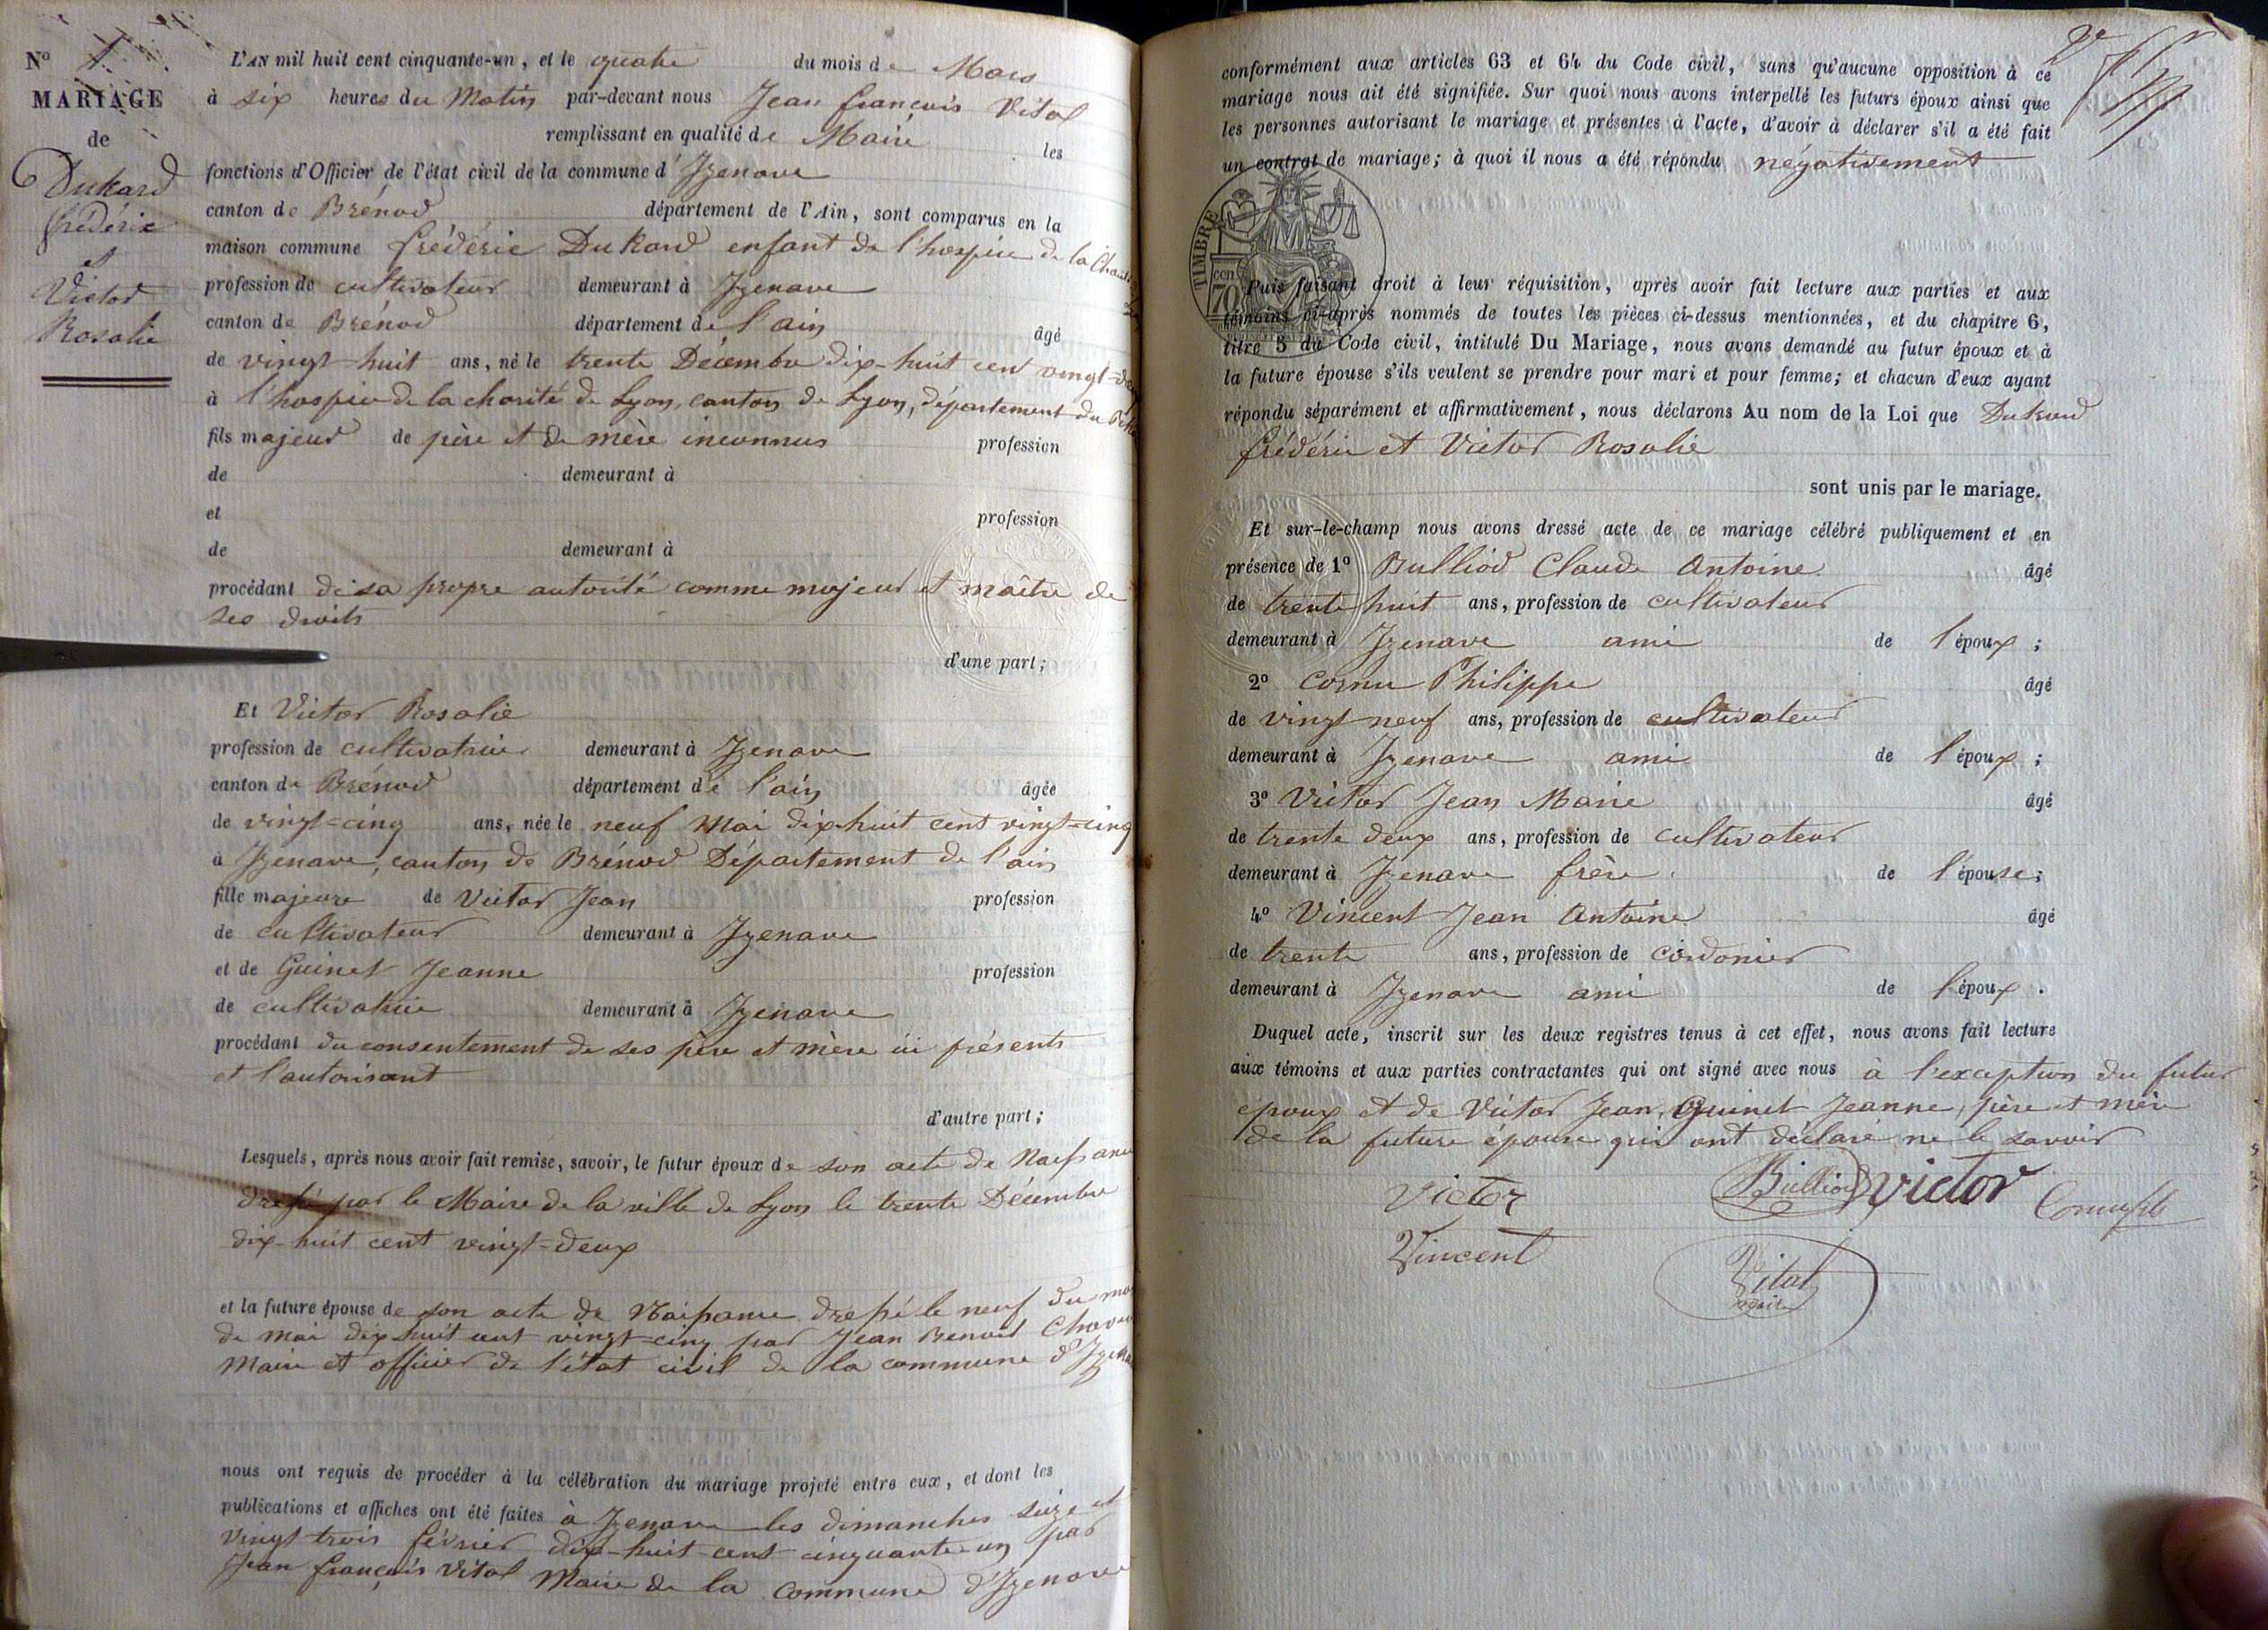 N° 1
MARIAGE
de
Dukard
frédéric
et
Victor
Rosalie
L'AN mil huit cent cinquante-un, et le quatre du mois de Mars
à six heures du Matin par-devant nous Jean françois Vital
remplissant en qualité de Maire les
fonctions d'Officier de l'état civil de la commune d'Izenave
canton de Brénod département de l'Ain, sont comparus en la
maison commune frédéric Dukard enfant de l'hospice de la
profession de cultivateur demeurant à Izenave
canton de Brénod département de l'ain âgé
de vingt-huit ans, né le trente Décembre dix-huit cent vingt-deux
à l'hospice de la charité de Lyon, canton de Lyon, département du
fils majeur de père et de mère inconnus profession
de demeurant à
et profession
de demeurant à
procédant de sa propre autorité comme majeur et maître de
ses droits
d'une part;
Et Victor Rosalie
profession de cultivatrice demeurant à Izenave
canton de Brénod département de l'ain âgée
de vingt-cinq ans, née le neuf Mai dix-huit cent vingt-cinq
à Izenave, canton de Brénod Département de l'ain
fille majeure de Victor Jean profession
de cultivateur demeurant à Izenave
et de Guinet Jeanne profession
de cultivatrice demeurant à Izenave
procédant du consentement de ses père et mère ici présents
et l'autorisant
d'autre part;
Lesquels, après nous avoir fait remise, savoir, le futur époux de son acte de Naissance
dressé par le Maire de la ville de Lyon le trente Décembre
dix-huit cent vingt-deux
et la future épouse de son acte de Naissance dressé le neuf du mois
de mai dix huit cent vingt-cinq par Jean Benoit
Maire et officier de l'état civil de la commune d'Izenave
nous ont requis de procéder à la célébration du mariage projeté entre eux, et dont les
publications et affiches ont été faites à Izenave les dimanches seize et
vingt-trois février dix-huit cent cinquante un par
Jean françois Vital Maire de la commune d'Izenave
conformément aux articles 63 et 64 du Code civil, sans qu'aucune opposition à ce
mariage nous ait été signifiée. Sur quoi nous avons interpellé les futurs époux ainsi que
les personnes autorisant le mariage et présentes à l'acte, d'avoir à déclarer s'il a été fait
un contrat de mariage; à quoi il nous a été répondu négativement
TIMBRE
70
Puis faisant droit à leur réquisition, après avoir fait lecture aux parties et aux
témoins ci-après nommés de toutes les pièces ci-dessus mentionnées, et du chapitre 6,
titre 5 du Code civil, intitulé Du Mariage, nous avons demandé au futur époux et à
la future épouse s'ils veulent se prendre pour mari et pour femme; et chacun d'eux ayant
répondu séparément et affirmativement, nous déclarons Au nom de la Loi que Dukard
frédéric et Victor Rosalie
sont unis par le mariage.
Et sur-le-champ nous avons dressé acte de ce mariage célébré publiquement et en
présence de 1° Bulliod Claude Antoine âgé
de trente huit ans, profession de cultivateur
demeurant à Izenave ami de l'époux;
2° Cornu Philippe âgé
de vingt neuf ans, profession de cultivateur
demeurant à Izenave ami de l'époux;
3° Victor Jean Marie âgé
de trente deux ans, profession de cultivateur
demeurant à Izenave frère de l'épouse;
4° Vincent Jean Antoine âgé
de trente ans, profession de cordonier
demeurant à Izenave ami de l'époux.
Duquel acte, inscrit sur les deux registres tenus à cet effet, nous avons fait lecture
aux témoins et aux parties contractantes qui ont signé avec nous à l'exception du futur
epoux et de Victor Jean, Guinet Jeanne, père et mère
de la future épouse qui ont déclaré ne le savoir
Victor Bulliod Victor
Vincent Vital
maire